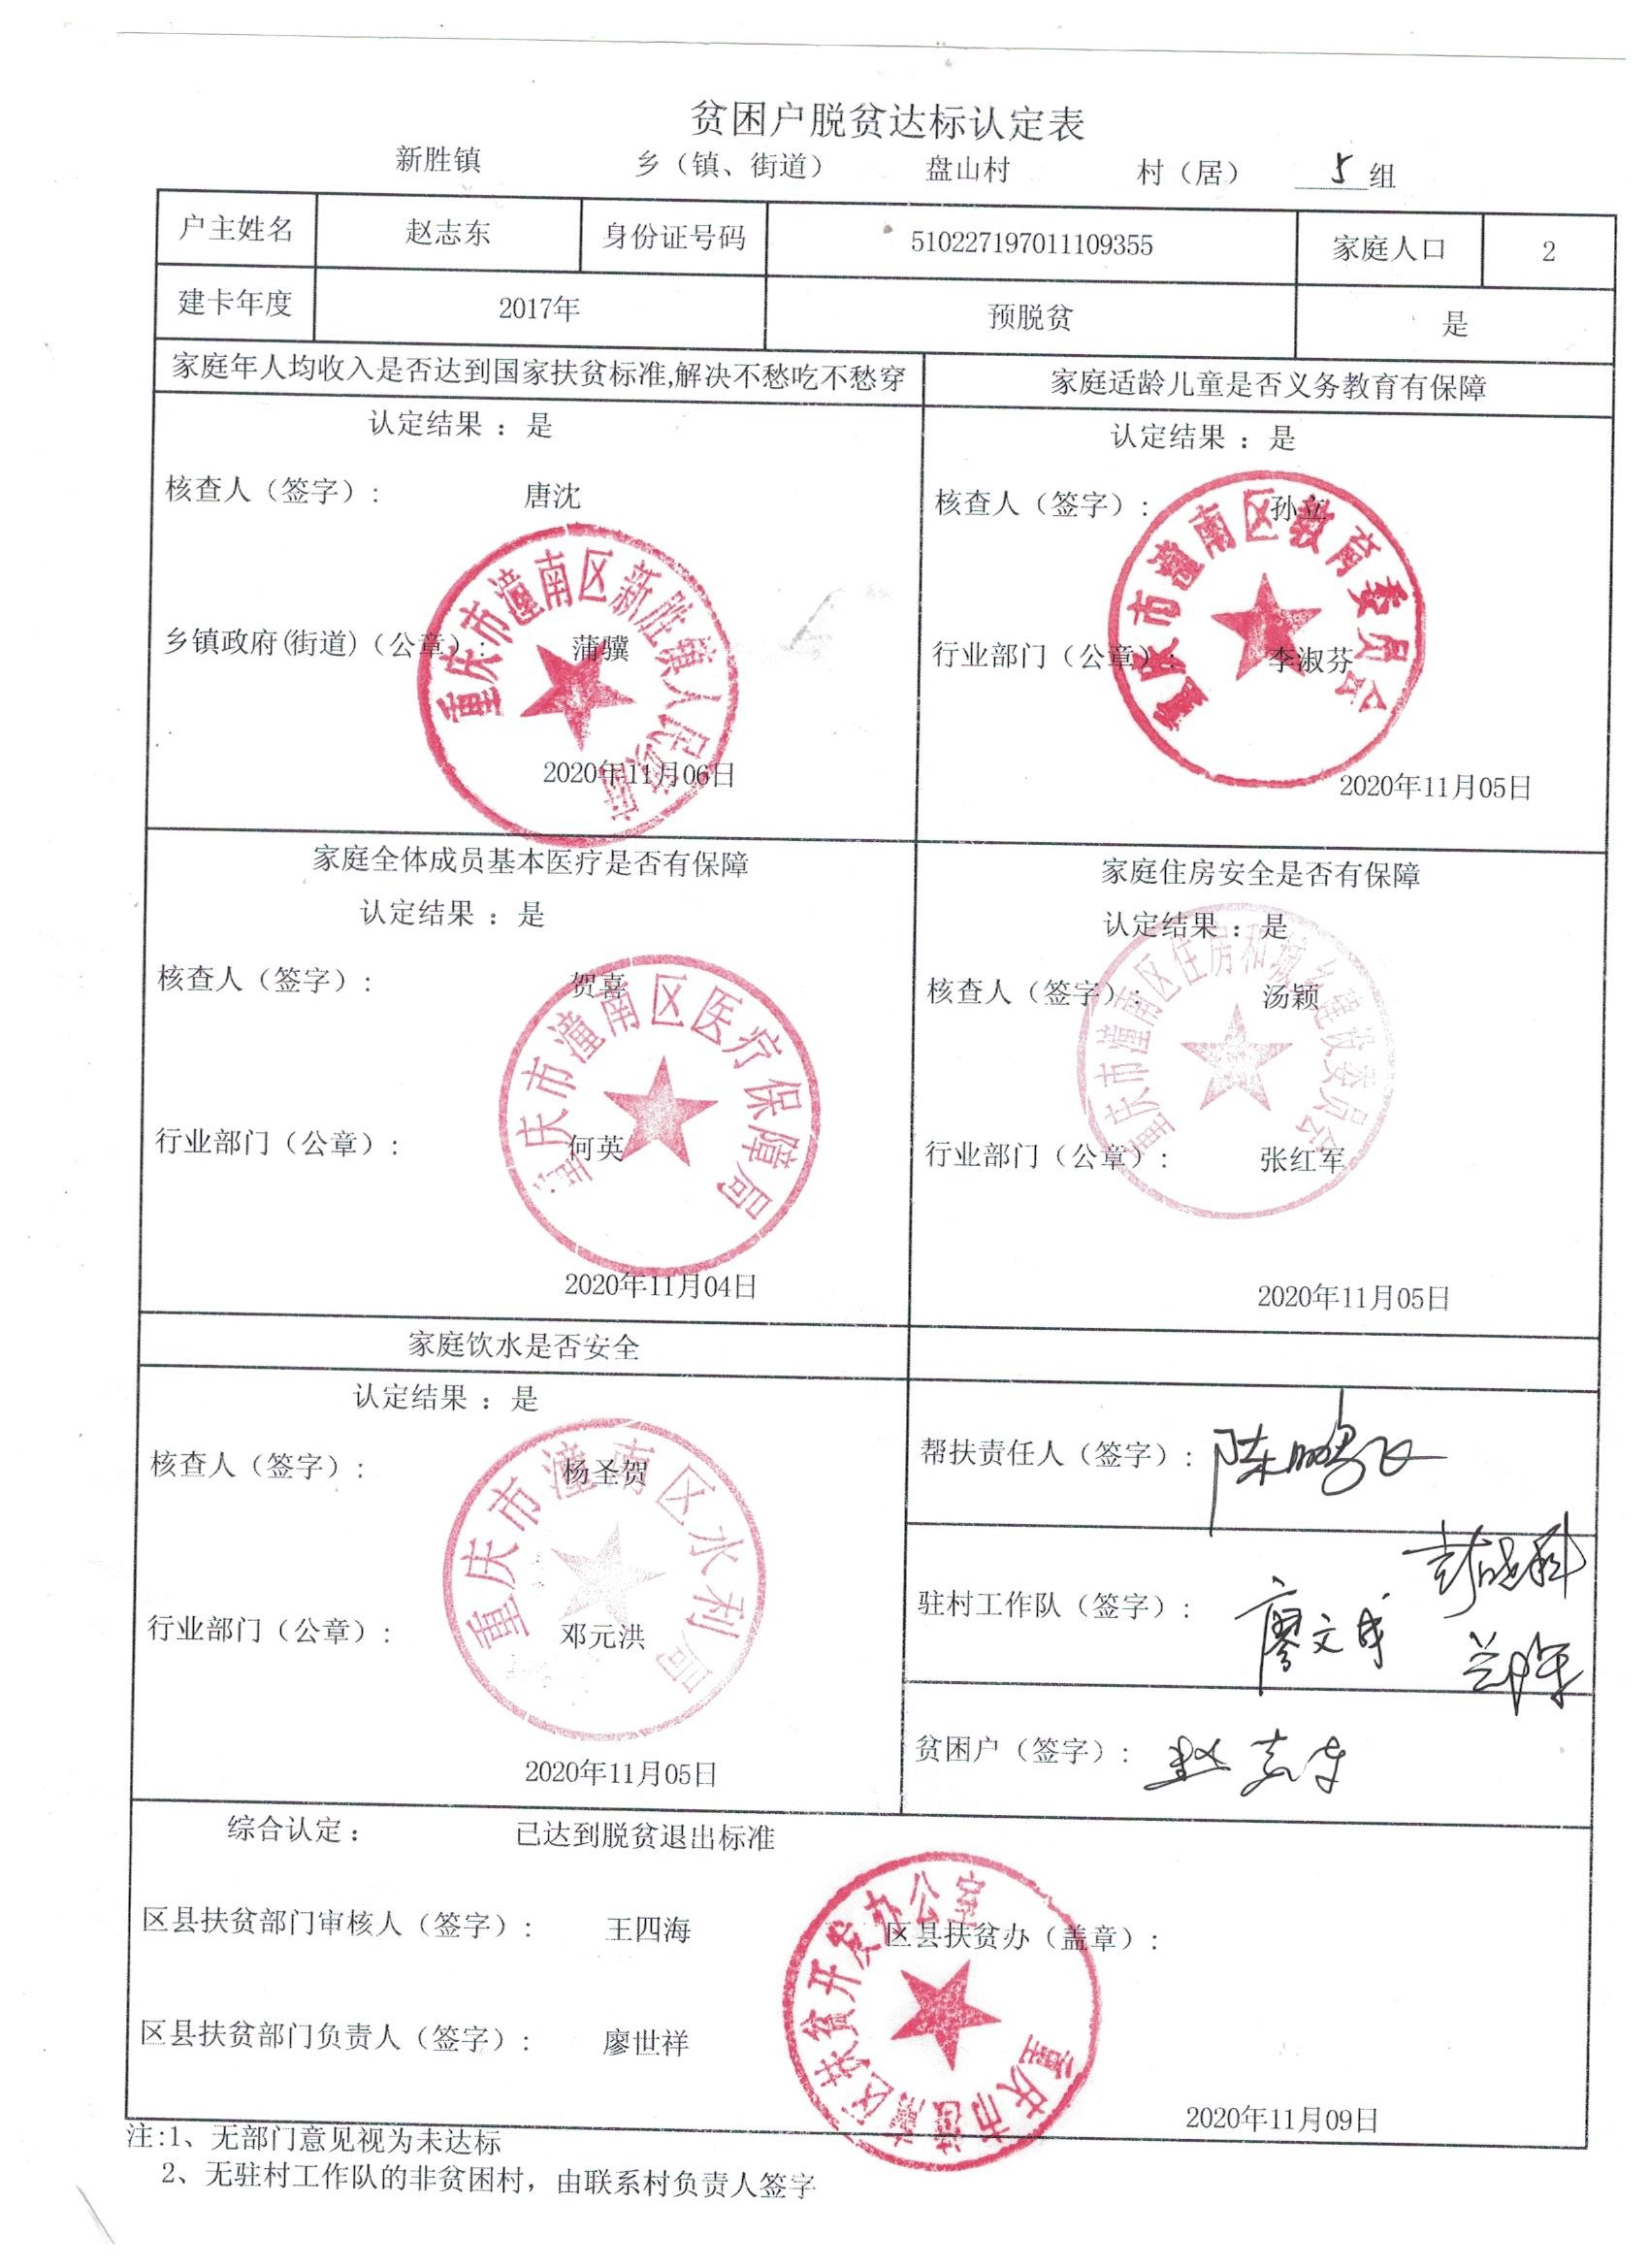 贫困户脱贫达标认定表
新胜镇 乡（镇、街道） 盘山村 村（居） 5组
户主姓名 赵志东 身份证号码 510227197011109355 家庭人口 2
建卡年度 2017年 预脱贫 是
家庭年人均收入是否达到国家扶贫标准,解决不愁吃不愁穿 家庭适龄儿童是否义务教育有保障
认定结果 ：是
核查人（签字）： 唐沈
乡镇政府(街道)（公章）： 蒲骥
重庆市潼南区新胜镇人民政府
2020年11月06日
认定结果 ：是
核查人（签字）： 孙立
行业部门（公章）： 李淑芬
重庆市潼南区教育委员会
2020年11月05日
家庭全体成员基本医疗是否有保障
认定结果 ：是
核查人（签字）： 贺喜
行业部门（公章）： 何英
重庆市潼南区医疗保障局
2020年11月04日
家庭住房安全是否有保障
认定结果 ：是
核查人（签字）： 汤颖
行业部门（公章）： 张红军
重庆市潼南区住房和城乡建设委员会
2020年11月05日
家庭饮水是否安全
认定结果 ：是
核查人（签字）： 杨圣贺
行业部门（公章）： 邓元洪
重庆市潼南区水利局
2020年11月05日
帮扶责任人（签字）： 陈鹏飞
驻村工作队（签字）： 廖文成
贫困户（签字）： 赵志东
综合认定 ： 已达到脱贫退出标准
区县扶贫部门审核人（签字）： 王四海 区县扶贫办（盖章）：
区县扶贫部门负责人（签字）： 廖世祥
重庆市潼南区扶贫开发办公室
2020年11月09日
注:1、无部门意见视为未达标
2、无驻村工作队的非贫困村，由联系村负责人签字